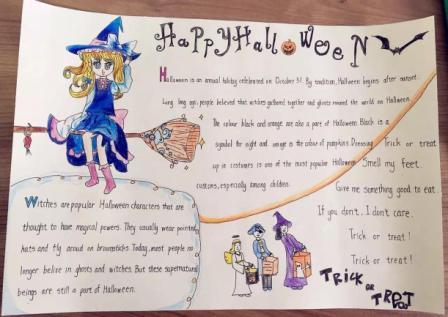 Happy Halloween
Halloween is an annual holiday celebrated on October 31. By tradition, Halloween begins after sunset.
Long long ago, people believed that witches gathered together and ghosts roamed the world on Halloween.
The colour black and orange are also a part of Halloween. Black is a
symbol for night and orange is the colour of pumpkins. Dressing
up in costumes is one of the most popular Halloween
customs, especially among children.
Trick or treat
Smell my feet.
Give me something good to eat.
If you don't. I don't care.
Trick or treat!
Trick or treat!
Witches are popular Halloween characters that are
thought to have magical powers. They usually wear pointed
hats and fly around on broomsticks. Today, most people no
longer belive in ghosts and witches. But these supernatural
beings are still a part of Halloween.
TRICK
OR